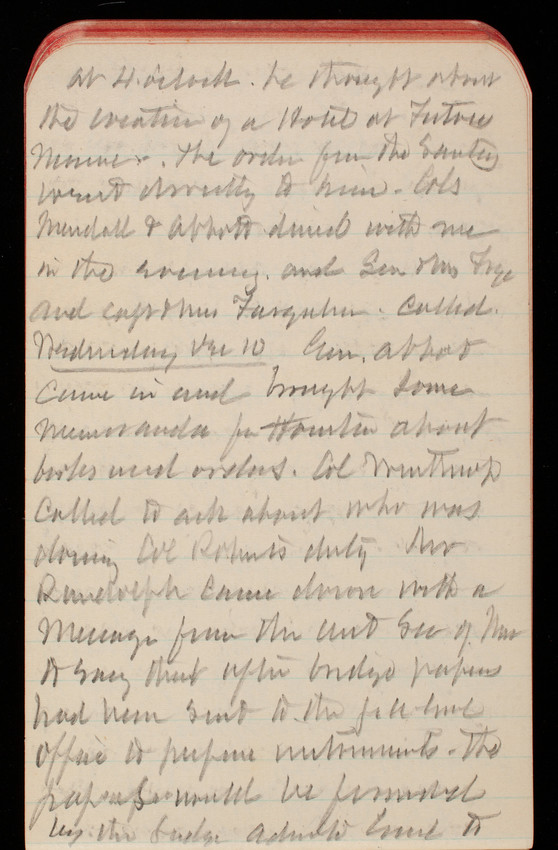 at 4 o'clock. he thought about
the location of a Hotel at Fortress
Monroe. The order from the Secty
went directly to him. Cols
Mendell & Abbott dined with me
in the evening. and Gen & Mrs Frye
and Capt & Mrs Farquhar. called.
Wednesday Dec 10 Gen. Abbot
came in and brought some
memoranda for Houston about
books and orders. Col Winthrop
called to ask about who was
doing Col Roberts duty. Mr
Randolph came down with a
message from the Sec of War
to say that after bridge papers
had been sent to the
office to prepare instruments. The
papers would be forwarded
by the Judge Advocate to